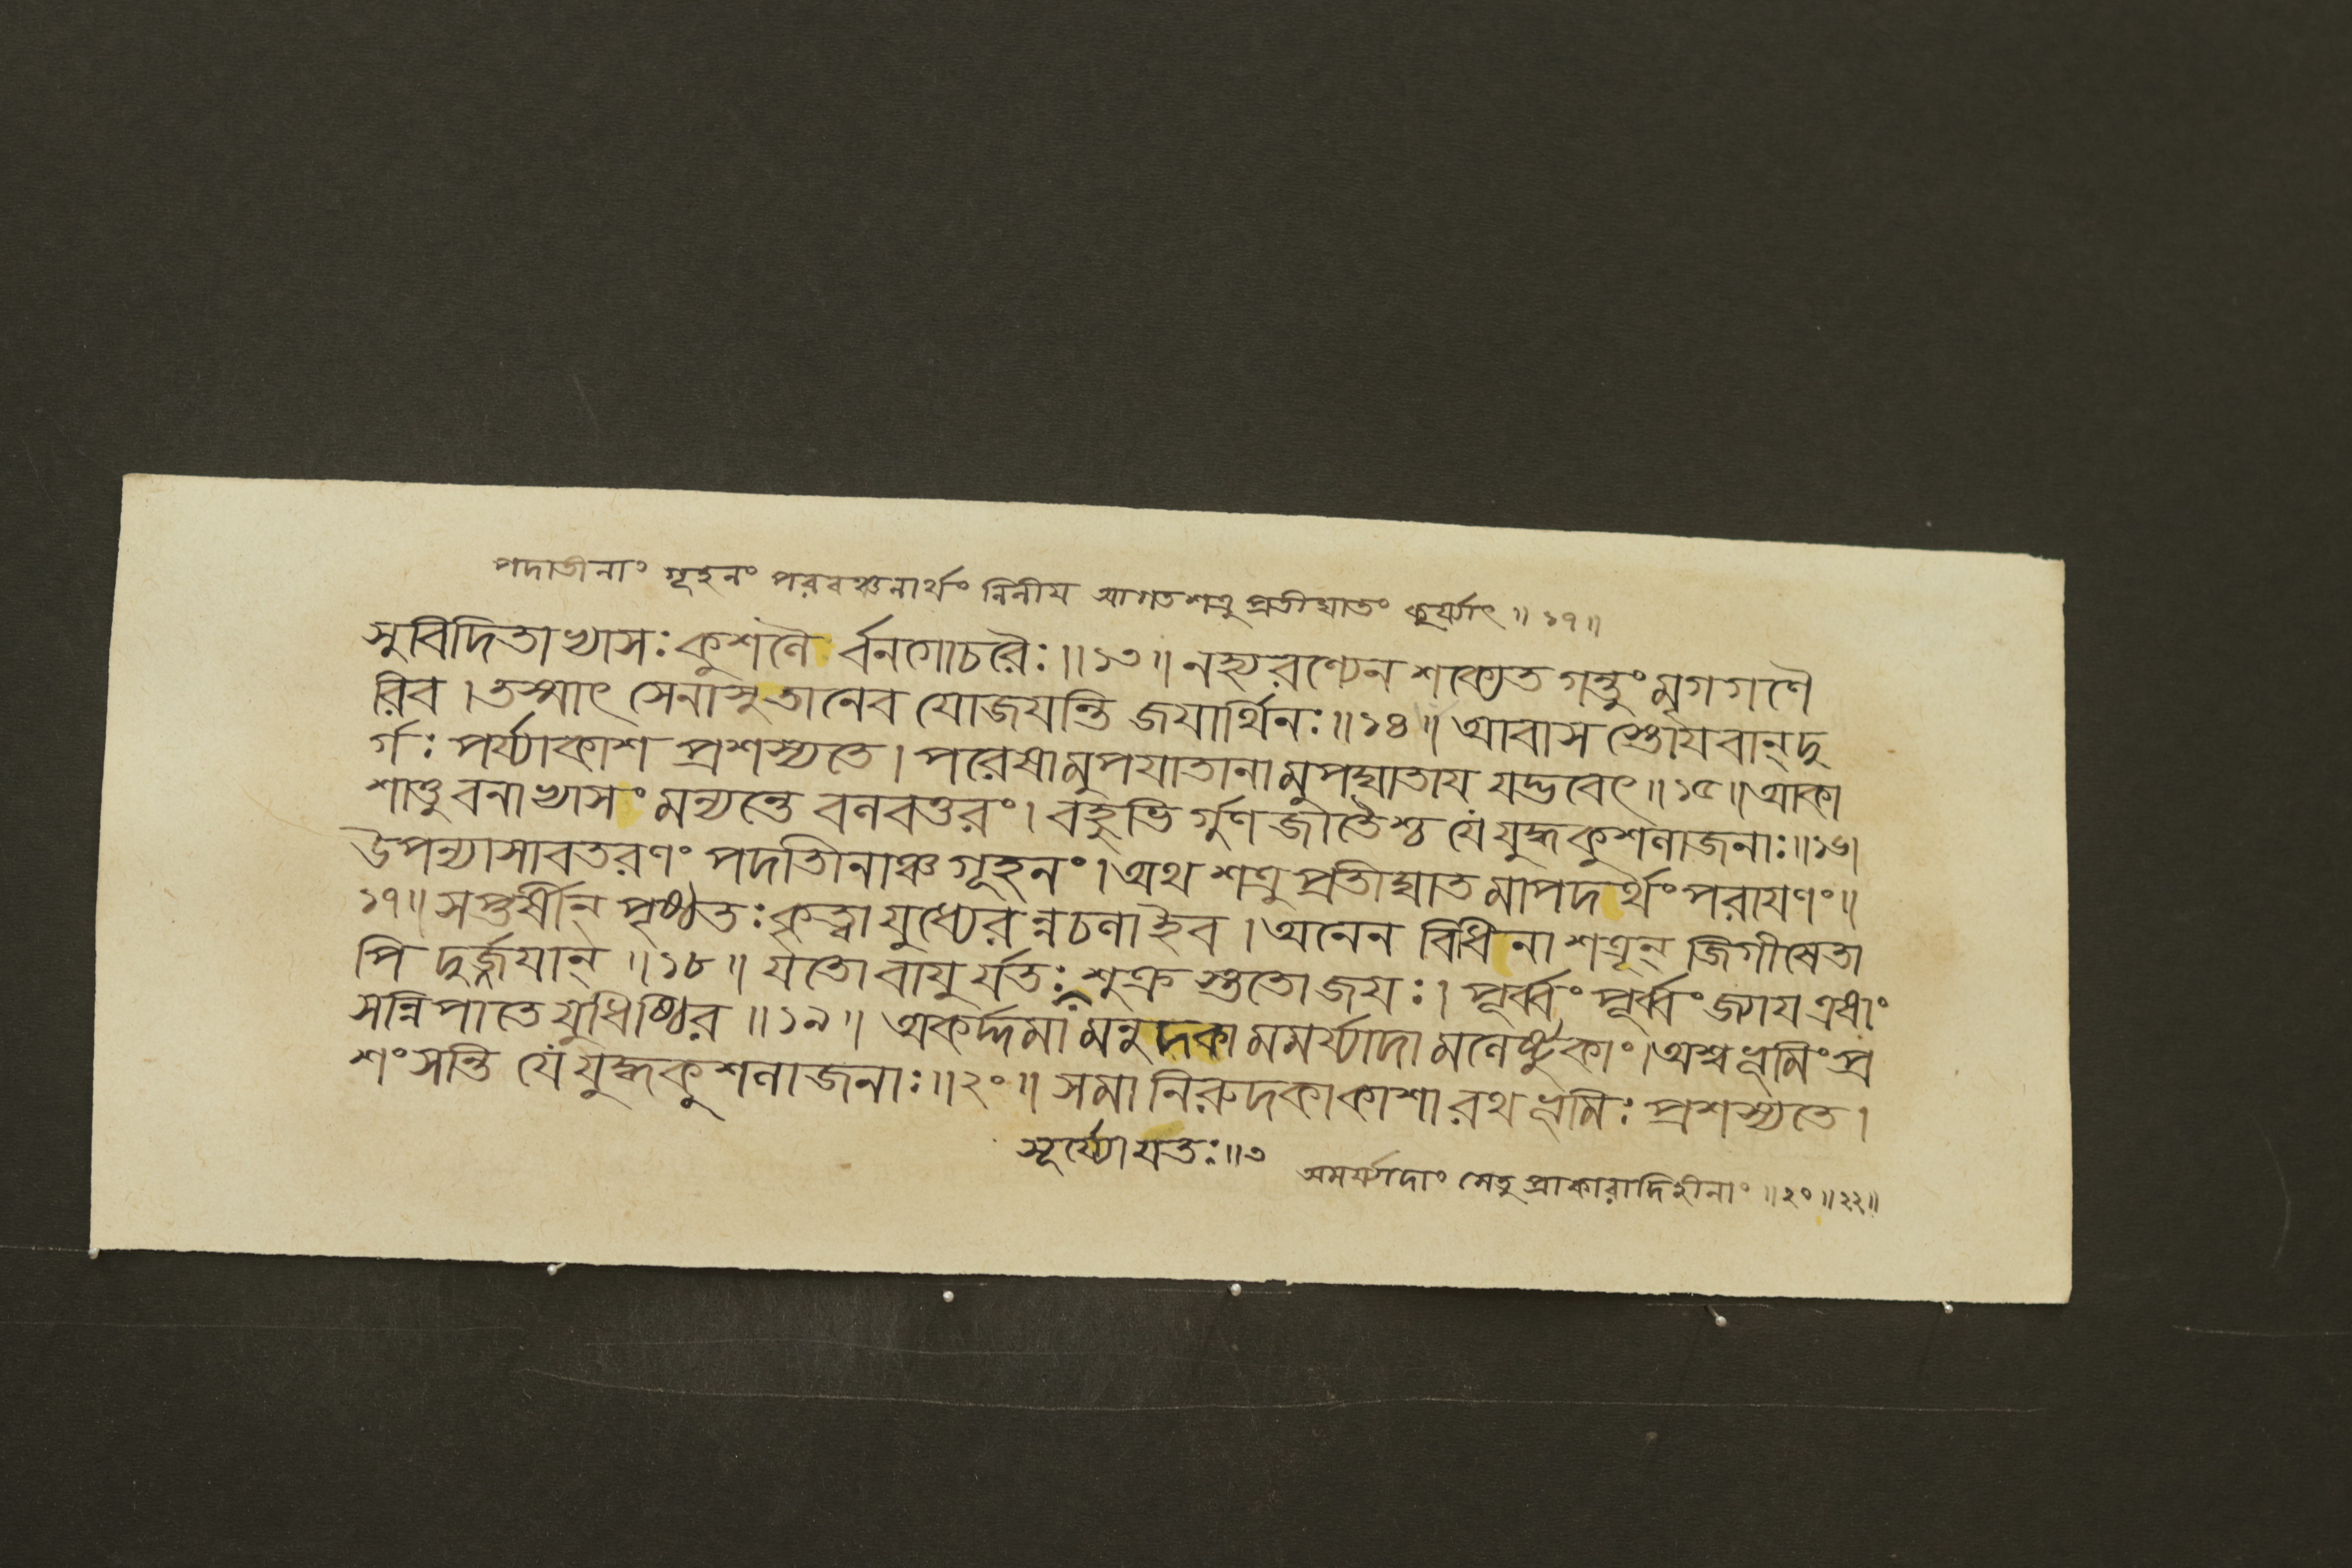 পদাতীনাং গূহনং পরবঞ্চনার্থং নিলীয আগতশত্রুপ্রতীঘাতং কুর্য্যাৎ ॥ ১৭ ॥
সুবিদিতাখ্যাসঃ কুশলৈর্বনগোচরৈঃ ॥ ১৩ ॥ নহ্যরণ্যেন শক্যেত গন্তুং মৃগগণৈ
রিব । তস্মাৎ সেনাসু তানেব যোজযন্তি জযার্থিনঃ ॥ ১৪ ॥ আবাসস্তোযবান্ দু
র্গঃ পর্য্যাকাশ প্রশস্যতে । পরেষামুপযাতানামুপঘাতায যদ্ভবেৎ ॥ ১৫ ॥ আকা
শাত্তু বনাখ্যাসং মন্যন্তে বলবত্তরং । বহুভির্গুণজাতৈশ্চ যে যুদ্ধকুশলাজনাঃ ॥ ১৬ ।
উপন্যাসাবতরণং পদাতীনাঞ্চ গূহনং । অথ শত্রুপ্রতীঘাতমাপদর্থং পরাযণং ॥
১৭ ॥ সপ্তর্ষীন্ পৃষ্ঠতঃ কৃত্বা যুধ্যেরন্নচলাইব । অনেন বিধিনা শত্রূন্ জিগীষেতা
পি দুর্জ্জযান্ ॥ ১৮ ॥ যতো বাযুর্যতঃ শুক্রস্ততো জযঃ । পূর্ব্বং পূর্ব্বং জ্যায এধাং
সন্নিপাতে যুধিষ্ঠির ॥ ১৯ ॥ অকর্দ্দমামনুদকামমর্য্যাদামলেষ্টুকাং । অশ্বভূমিং প্র
শংসন্তি যে যুদ্ধকুশলাজনাঃ ॥ ২০ ॥ সমা নিরুদকাকাশা রথভূমিঃ প্রশস্যতে ।
সূর্য্যো যতঃ ॥ ৩
অমর্য্যাদাং সেতুপ্রাকারাদিহীনাং ॥ ২০ ॥ ২২ ॥